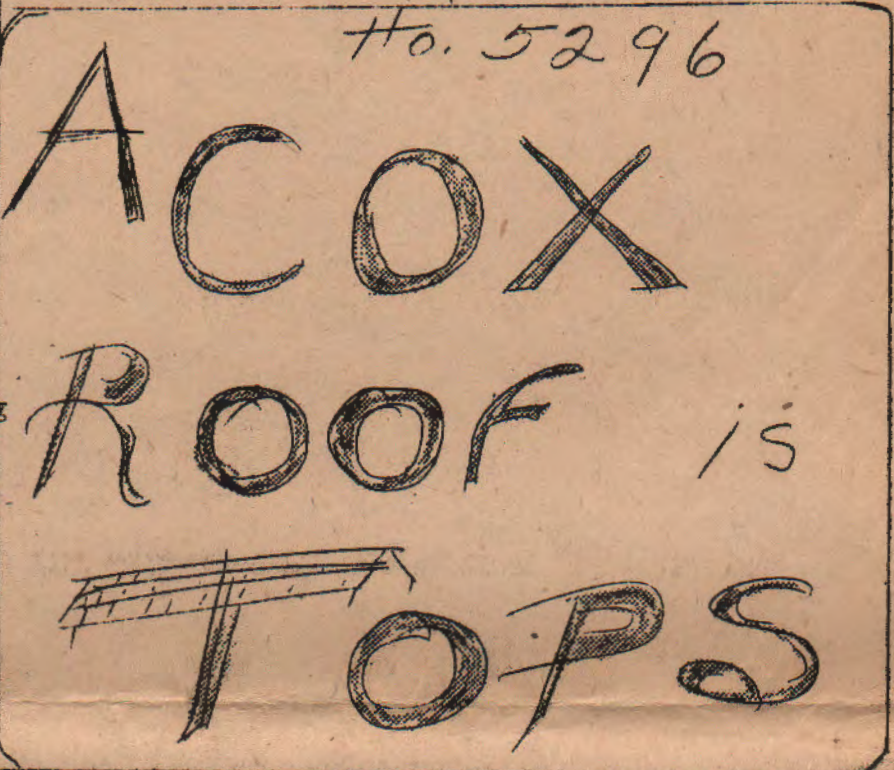 Ho. 5296
A COX
ROOF is
TOPS